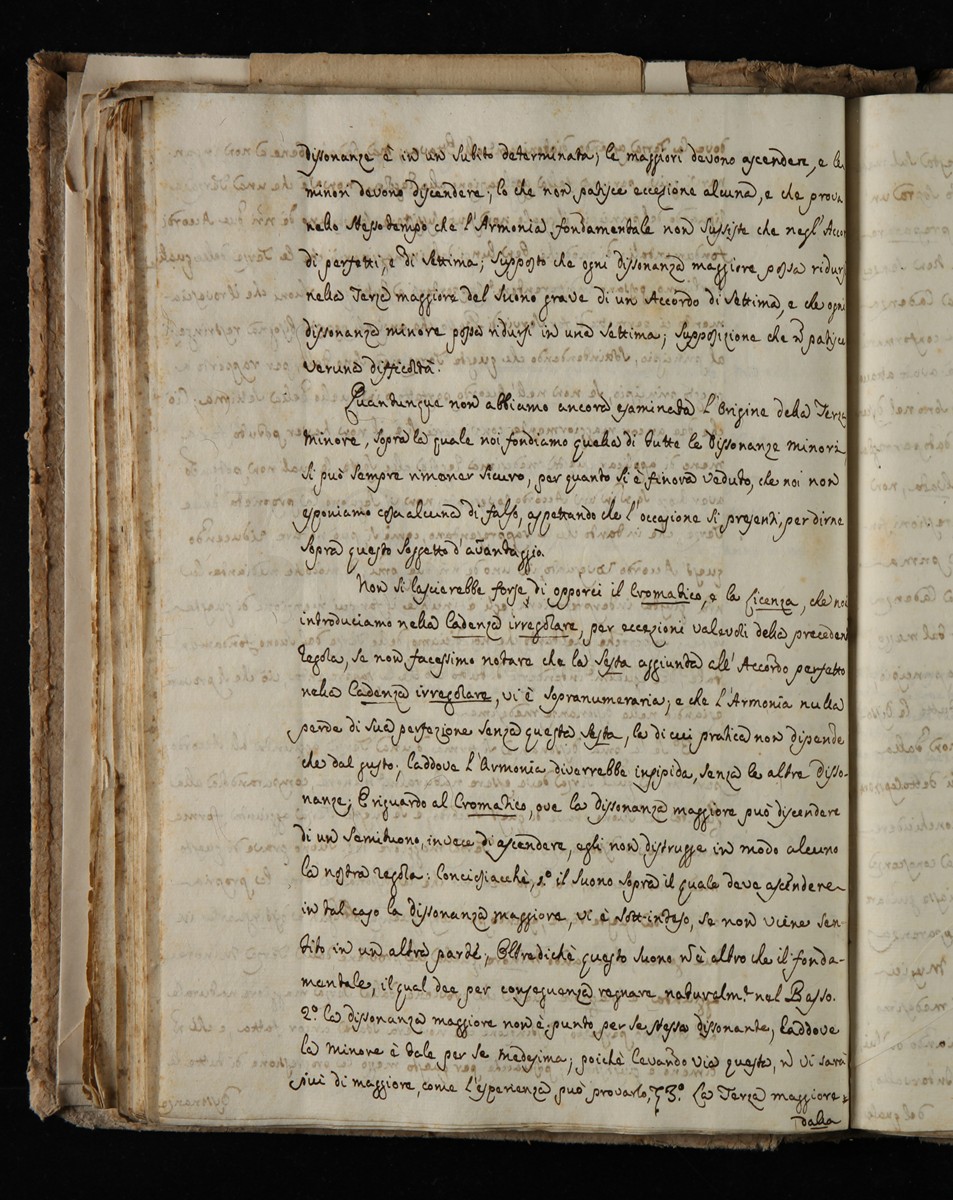 dissonanze è in un subito determinata; le maggiori devono ascendere, e le
minori devono discendere; lo che non patisce eccezione alcuna, e che prova
nello stesso tempo che l'Armonia fondamentale non sussiste che negl'Accor
di perfetti, e di settima; supposto che ogni dissonanza maggiore possa ridursi
nella Terza maggiore del Suono grave di un Accordo di Settima, e che ogni
dissonanza minore possa ridursi in una Settima; supposizione che ñ patisce
veruna difficoltà.
Quantunque non abbiamo ancora esaminata l'Origine della Terza
minore, sopra la quale noi fondiamo quella di tutte le Dissonanze minori,
si può sempre rimaner sicuro, per quanto si è finora veduto, che noi non
esponiamo cosa alcuna di falso, aspettando che l'occasione si presenti, per dirne
sopra questo soggetto d'avantaggio.
Non si lascierebbe forse di opporci il Cromatico, e la Licenza, che noi
introduciamo nella Cadenza irregolare, per eccezioni valevoli della preceden
regola, se non facessimo notare che la Sesta aggiunta all'Accordo perfetto
nella Cadenza irregolare, vi è sopranumeraria; e che l'Armonia nulla
perde di sua perfezione senza questa Sesta, la di cui pratica non dipende
che dal gusto; laddove l'Armonia diverrebbe insipida, senza le altre disso-
nanze; E riguardo al Cromatico, ove la dissonanza maggiore può discendere
di un Semituono, invece di ascendere, egli non distrugge in modo alcuno
la nostra regola: Conciossiacchè, 1.º il Suono sopra il quale deve ascendere
in tal caso la dissonanza maggiore, vi è sott'inteso, se non viene sen-
tito in un altra parte, Oltredichè questo suono ñ è altro che il fonda-
mentale, il qual dee per conseguenza regnare naturalm.te nel Basso.
2.º la dissonanza maggiore non è punto per se stessa dissonante, laddove
la minore è tale per se medesima; poichè levando via questa, ñ vi sarà
più di maggiore, come l'esperienza può provarlo, 3.º La Terza maggiore
dalla